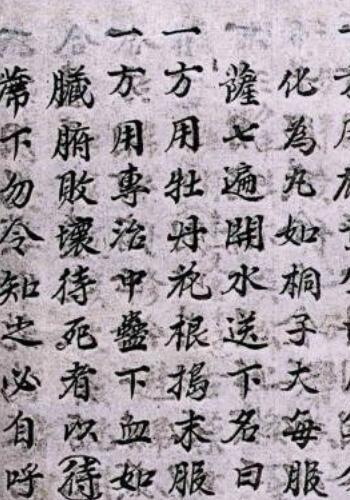 化為丸如桐子大每服
薩七遍開水送下名曰
一方用牡丹花根搗末服
一方用專治中蠱下血如
臟腑敗壞待死者以待
席下勿令知之必自呼